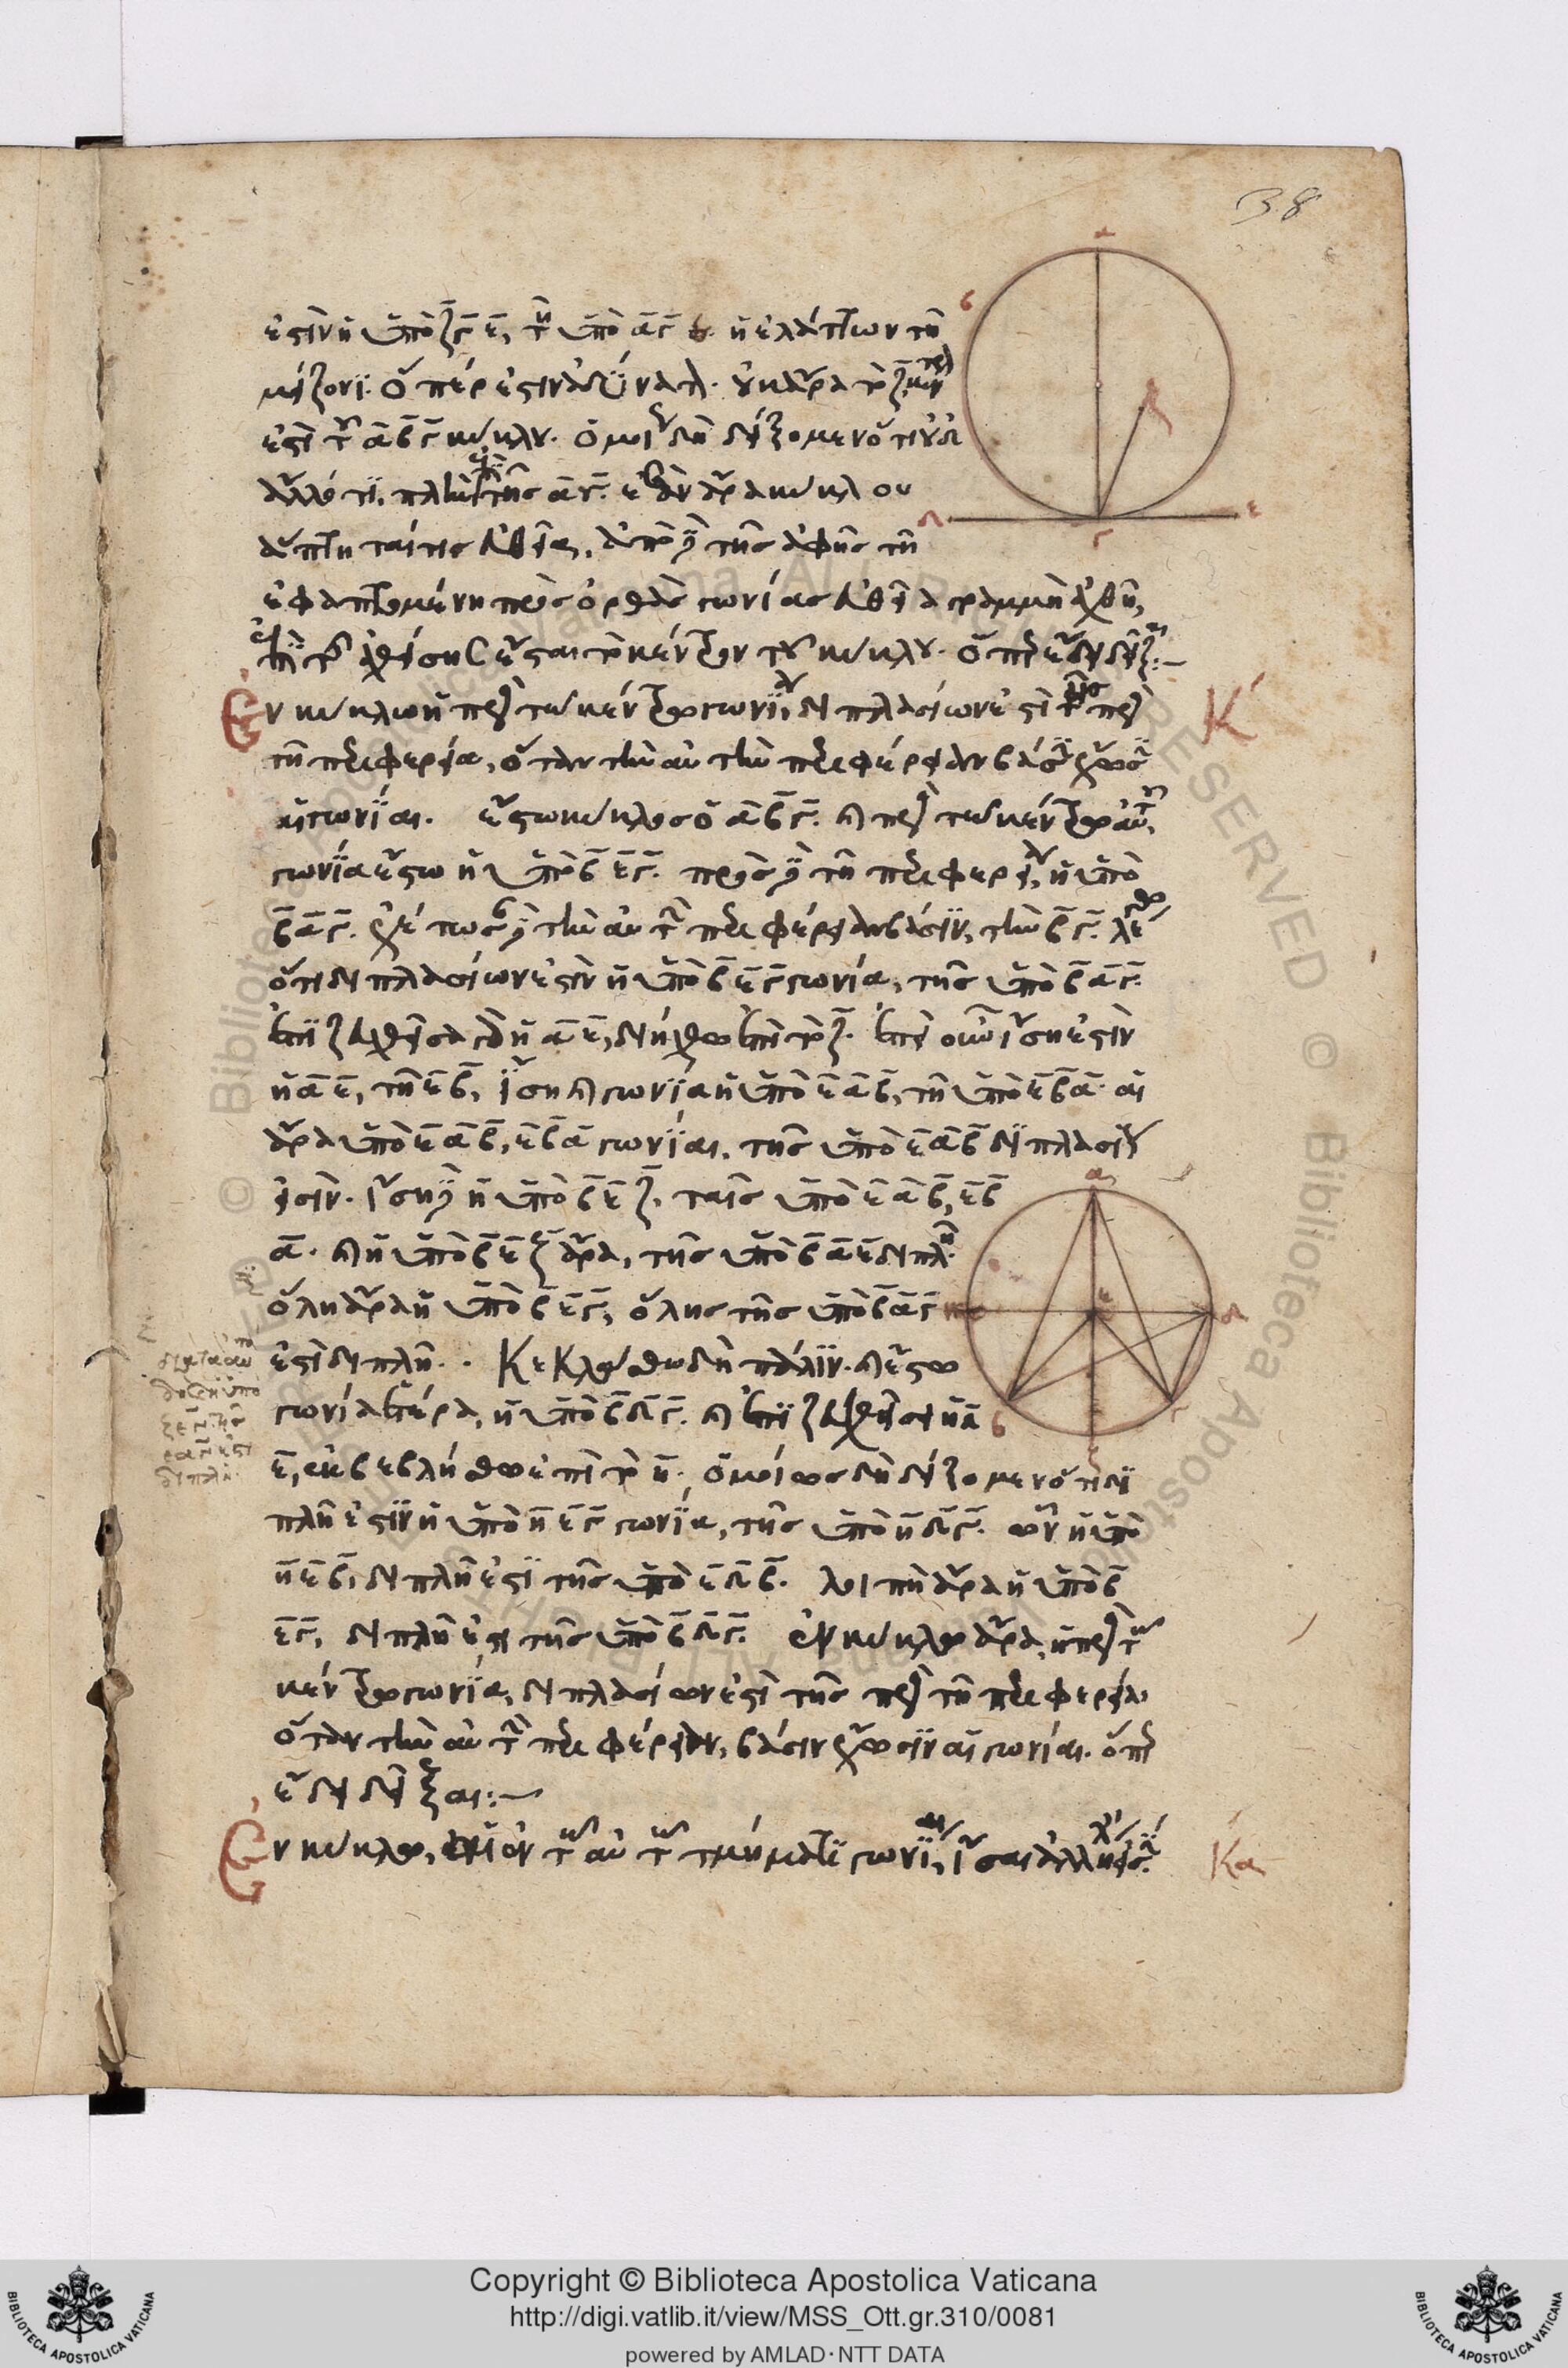 38
ἐστὶν ἡ ὑπὸ ζγε, τῇ ὑπὸ αγε. ἡ ἐλάττων τῇ
μείζονι. ὅπερ ἐστὶν ἀδύνατον. οὐκ ἄρα τὸ ζ κέντρον
ἐστὶ τοῦ αβγ κύκλου. ὁμοίως δὴ δείξομεν ὅτι οὐδ
ἄλλό τι πλὴν ἐπὶ τῆς αγ. ἐὰν ἄρα κύκλου
ἅπτηταί τις εὐθεῖα, ἀπὸ δὲ τῆς ἀφῆς τῇ
ἐφαπτομένῃ πρὸς ὀρθὰς γωνίας εὐθεῖα γραμμὴ ἀχθῇ,
ἐπὶ τῆς ἀχθείσης ἔσται τὸ κέντρον τοῦ κύκλου. ὅπερ ἔδει δεῖξαι:
Ἐν κύκλω ἡ πρὸς τῶ κέντρω γωνία, διπλασίων ἐστὶ τῆς πρὸς
Κ
τῇ περιφερεία, ὅταν τὴν αὐτὴν περιφέρειαν βάσιν ἔχωσιν
αἱ γωνίαι. ἔστω κύκλος ὁ αβγ. καὶ πρὸς τῶ κέντρω αὐτοῦ,
γωνία ἔστω ἡ ὑπὸ βεγ. πρὸς δὲ τῇ περιφερεία, ἡ ὑπὸ
βαγ. ἐχέτωσαν δὲ τὴν αὐτὴν περιφέρειαν βάσιν, τὴν βγ. λέγω
ὅτι διπλασίων ἐστὶν ἡ ὑπὸ βεγ γωνία, τῆς ὑπὸ βαγ.
ἐπιζευχθεῖσα γὰρ ἡ αε, διήχθω ἐπὶ τὸ ζ. ἐπεὶ οὖν ἴση ἐστὶν
ἡ αε, τῇ εβ, ἴση καὶ γωνία ἡ ὑπὸ εαβ, τῇ ὑπὸ εβα. αἱ
ἄρα ὑπὸ εαβ, εβα γωνίαι, τῆς ὑπὸ εαβ διπλασίους
εἰσίν. ἴση δὲ ἡ ὑπὸ βεζ, ταῖς ὑπὸ εαβ, εβ
α. καὶ ἡ ὑπὸ βεζ ἄρα, τῆς ὑπὸ βαε διπλῆ.
ὅλη ἄρα ἡ ὑπὸ βεγ, ὅλης τῆς ὑπὸ βαγ
ἐστὶ διπλῆ. Κεκλάσθω δὴ πάλιν. καὶ ἔστω
γωνία ἑτέρα, ἡ ὑπὸ βδγ. καὶ ἐπιζευχθεῖσα ἡ δ
ε, ἐκβεβλήσθω ἐπὶ τὸ η. ὁμοίως δὴ δείξομεν ὅτι δι
πλῆ ἐστὶν ἡ ὑπὸ ηεγ γωνία, τῆς ὑπὸ ηδγ. ὧν ἡ ὑπὸ
ηεβ, διπλῆ ἐστὶ τῆς ὑπὸ εδβ. λοιπὴ ἄρα ἡ ὑπὸ β
εγ, διπλῆ ἐστι τῆς ὑπὸ βδγ. ἐν κύκλω ἄρα, ἡ πρὸς τῶ
κέντρω γωνία, διπλασίων ἐστὶ τῆς πρὸς τῇ περιφερεία,
ὅταν τὴν αὐτὴν περιφέρειαν, βάσιν ἔχωσιν αἱ γωνίαι. ὅπερ
ἔδει δεῖξαι:
Ἐν κύκλω, αἱ ἐν τῶ αὐτῶ τμήματι γωνίαι, ἴσαι ἀλλήλαις εἰσί.
Κα
Copyright © Biblioteca Apostolica Vaticana
http://digi.vatlib.it/view/MSS_Ott.gr.310/0081
powered by AMLAD·NTT DATA